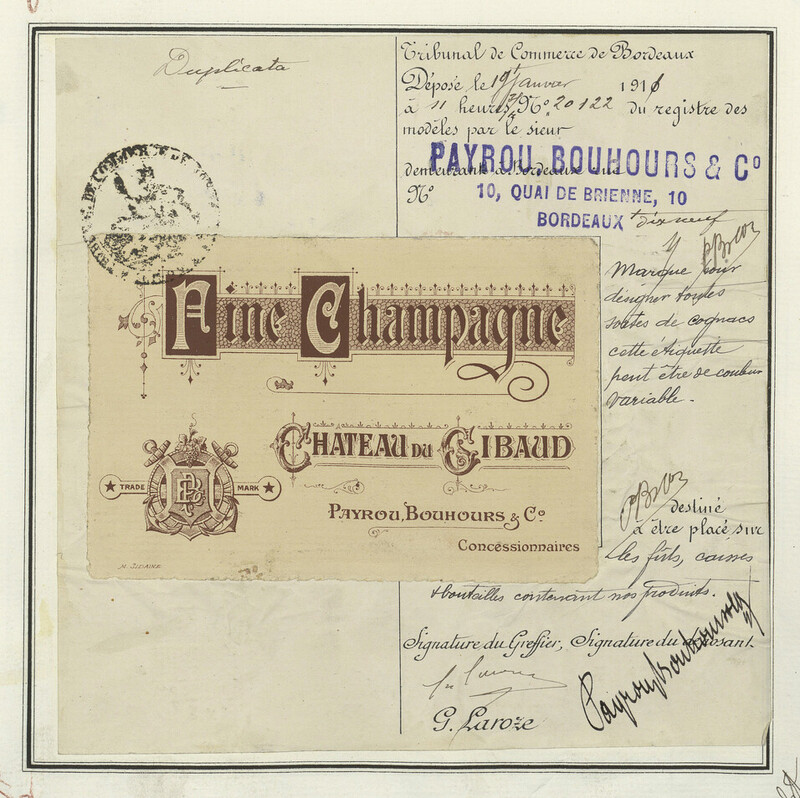 Duplicata
Tribunal de Commerce de Bordeaux
Déposé le 19 Janvier 1916
à 11 heures 3/4 N° 20122 du registre des
modèles par le sieur
PAYROU, BOUHOURS & C°
demeurant à Bordeaux rue
N° 10, QUAI DE BRIENNE, 10
BORDEAUX dix neuf
Marque pour
désigner toutes
sortes de cognacs
cette étiquette
peut être de couleur
variable.
Fine Champagne
CHATEAU DU GIBAUD
TRADE MARK
PAYROU, BOUHOURS & C°
Concessionnaires
destiné
à être placé sur
les fûts, caisses
& bouteilles contenant nos produits.
Signature du Greffier, Signature du déposant.
Payrou Bouhours
G. Laroze